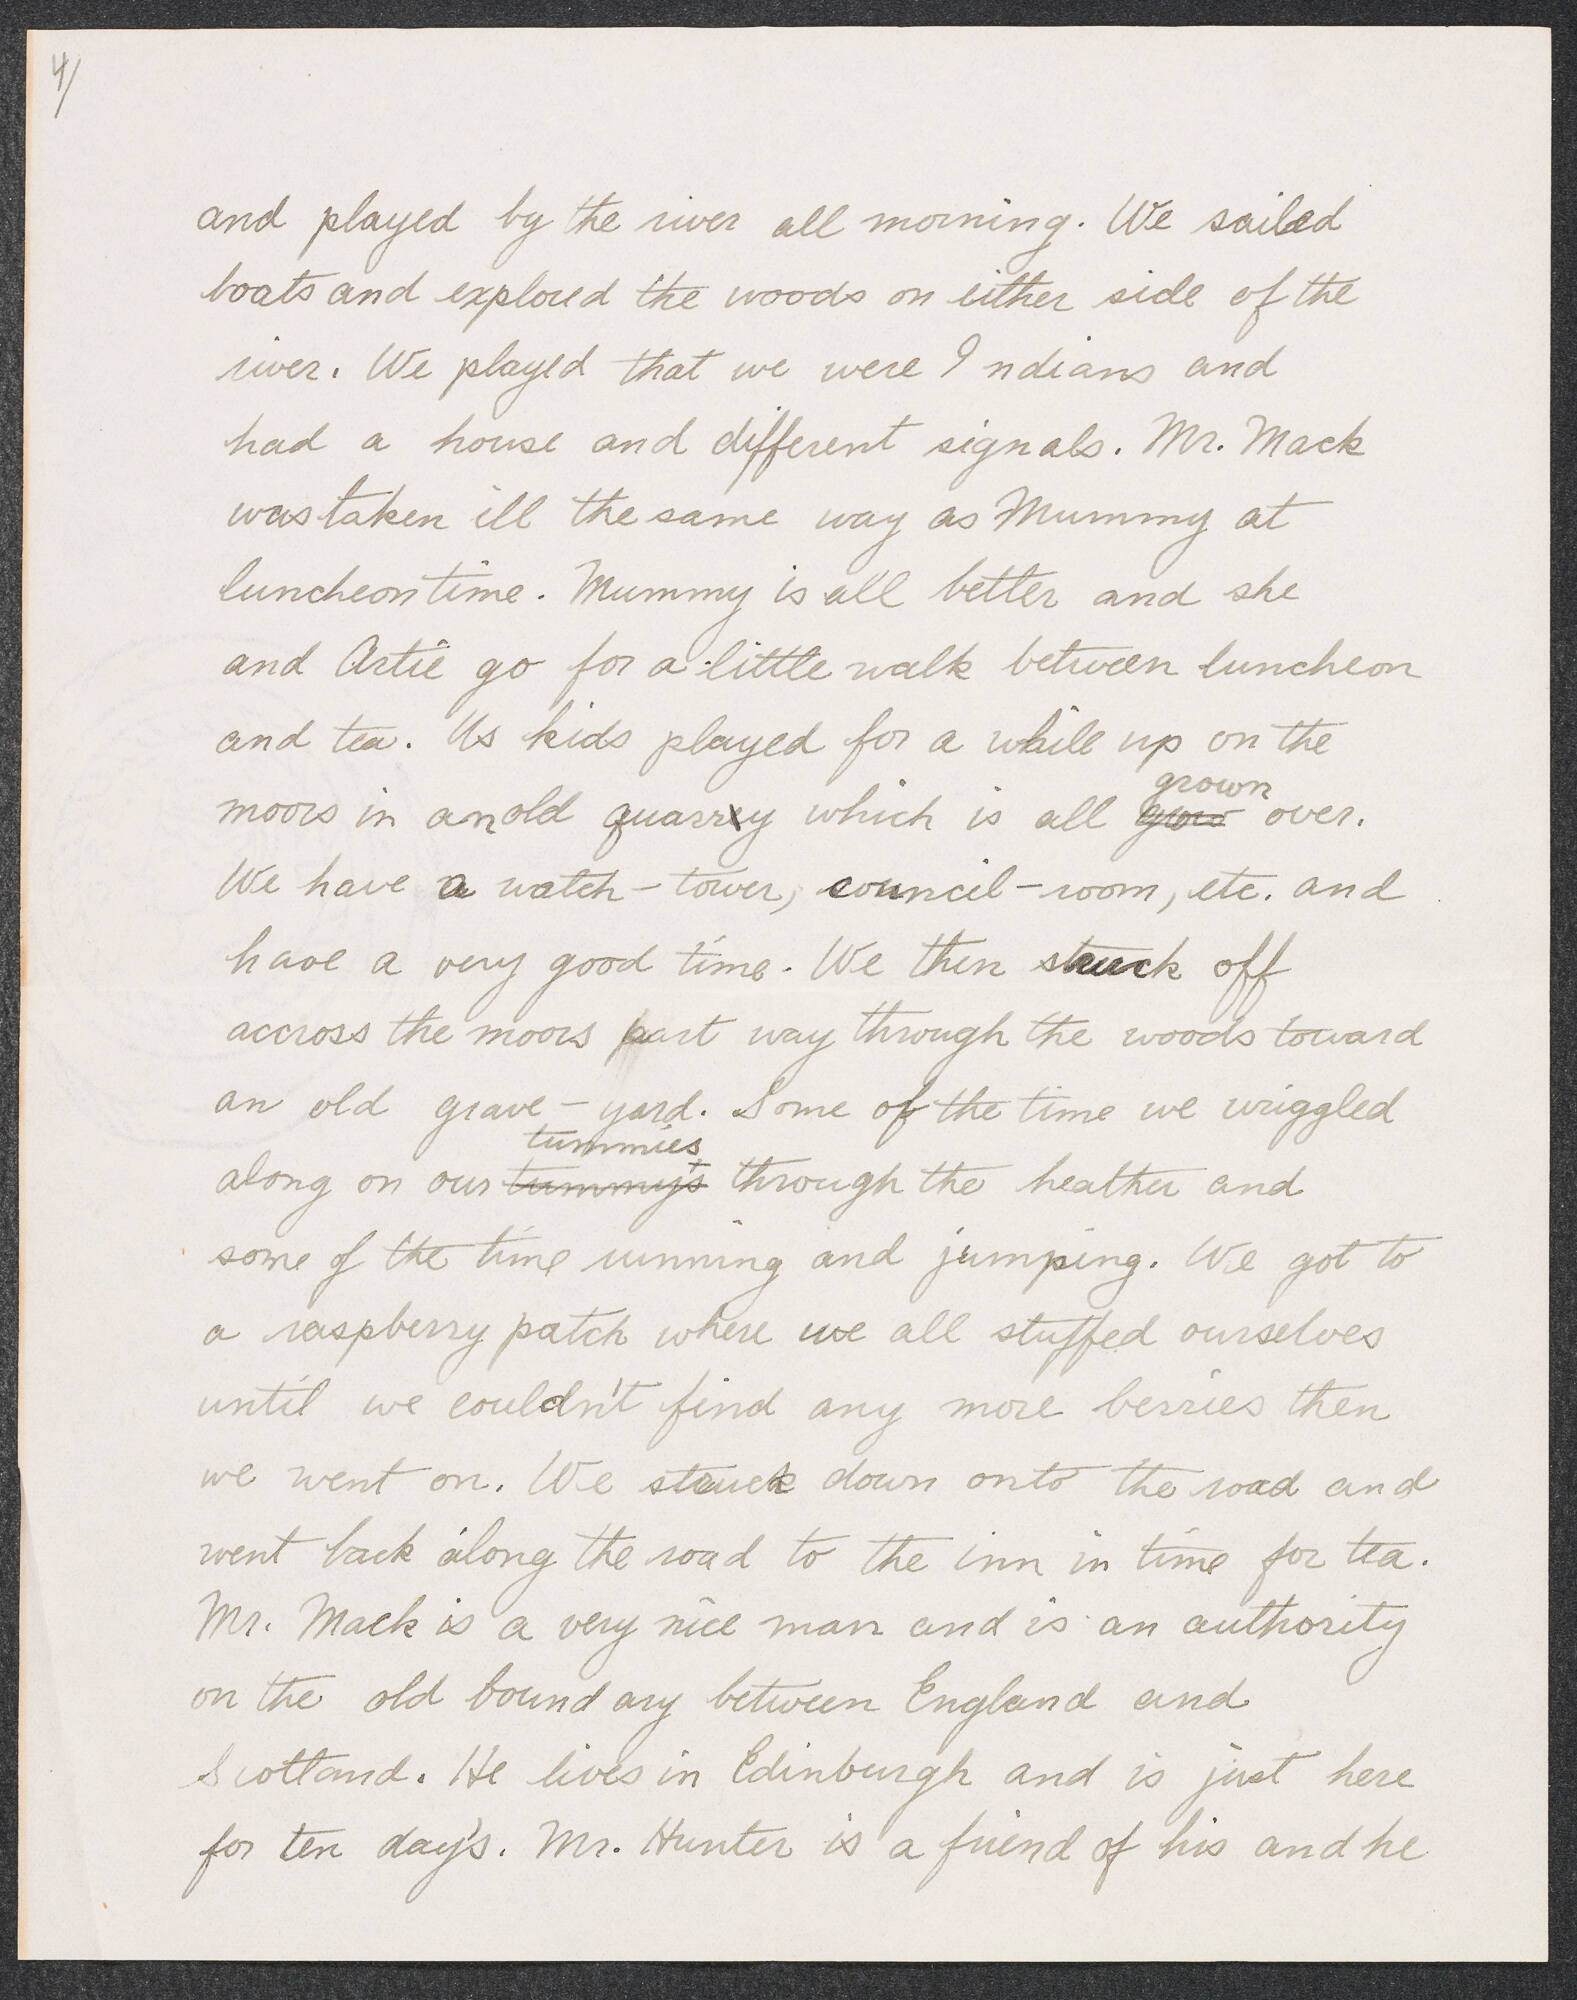 4/
and played by the river all morning. We sailed
boats and explored the woods on either side of the
river. We played that we were Indians and
had a house and different signals. Mr. Mack
was taken ill the same way as Mummy at
luncheon time. Mummy is all better and she
and Artie go for a little walk between luncheon
and tea. Us kids played for a while up on the
grown
moors in an old quarry which is all grow over.
We have a watch-tower, council-room, etc. and
have a very good time. We then struck off
accross the moors part way through the woods toward
an old grave-yard. Some of the time we wriggled
tummies
along on our tummy's through the heather and
some of the time running and jumping. We got to
a raspberry patch where we all stuffed ourselves
until we couldn't find any more berries then
we went on. We struck down onto the road and
went back along the road to the inn in time for tea.
Mr. Mack is a very nice man and is an authority
on the old boundary between England and
Scotland. He lives in Edinburgh and is just here
for ten day's. Mr. Hunter is a friend of his and he